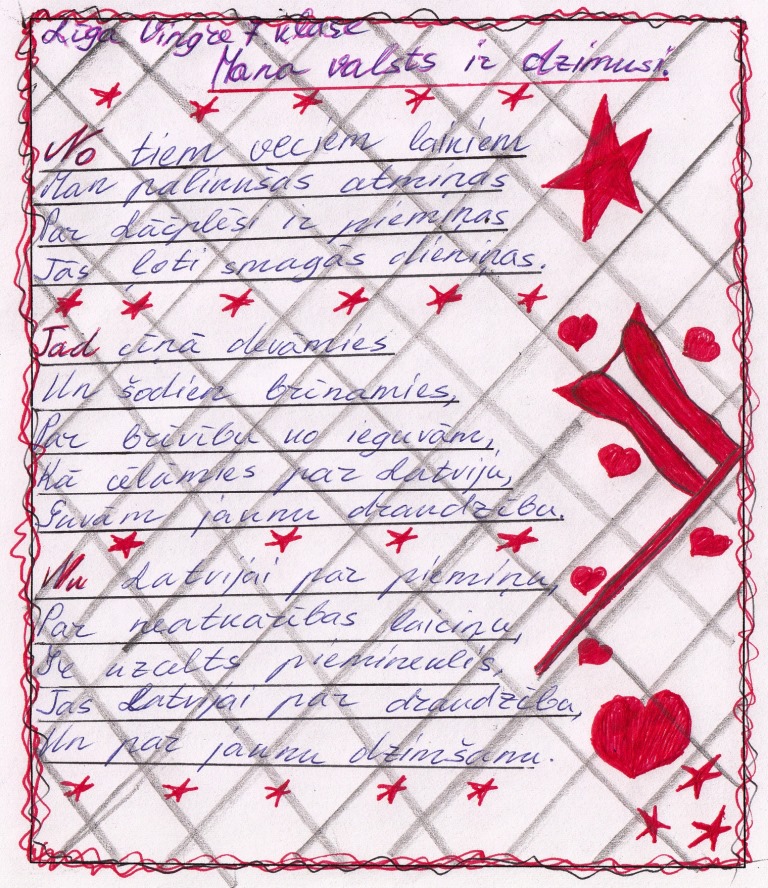 Līga Vingre 7 klase
Mana valsts ir dzimusi.
No tiem veciem laikiem
Man palikušas atmiņas
Par Lāčplēsi ir piemiņas
Tās ļoti smagās dieniņas.
Tad cīņā devāmies
Un šodien brīnamies,
Par brīvību ko ieguvām,
Kā cēlamies par Latviju,
Guvām jaunu draudzību.
Nu Latvijai par piemiņu,
Par neatkarības laiciņu,
Te uzcelts piemineklis,
Tas Latvijai par draudzību,
Un par jaunu dzimšanu.